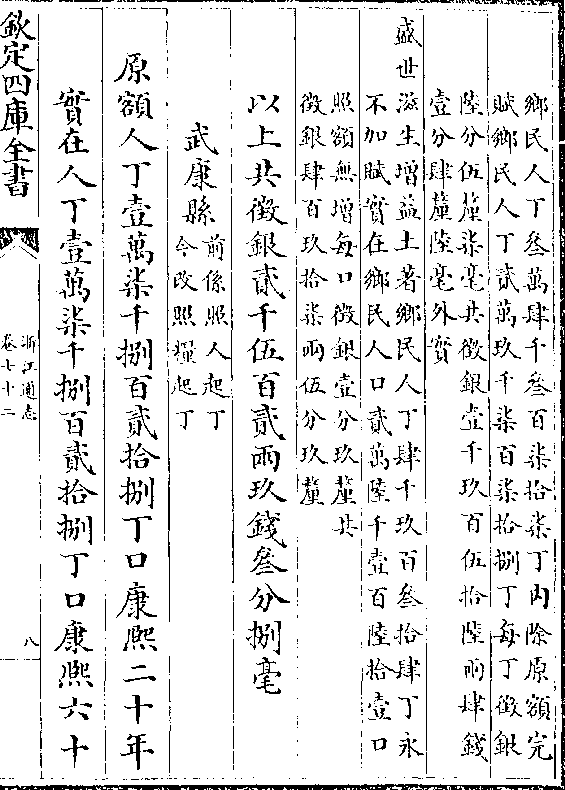 鄉民人丁叁萬肆千叁百柒拾柒丁内除原額完
賦鄉民人丁貳萬玖千柒百柒拾捌丁每丁徵銀
陸分伍釐柒毫共徵銀壹千玖百伍拾陸兩肆錢
壹分肆釐陸毫外實
盛世滋生增益土著鄉民人丁肆千玖百叁拾肆丁永
不加賦實在鄉民人口貳萬陸千壹百陸拾壹口
照額無增每口徵銀壹分玖釐共
徵銀肆百玖拾柒兩伍分玖釐
以上共徵銀貳千伍百貳兩玖錢叁分捌毫
武康縣前係照人起丁
今改照糧起丁
原額人丁壹萬柒千捌百貳拾捌丁口康熙二十年
實在人丁壹萬柒千捌百貳拾捌丁口康熙六十
欽定四庫全書
浙江通志
卷七十二
八